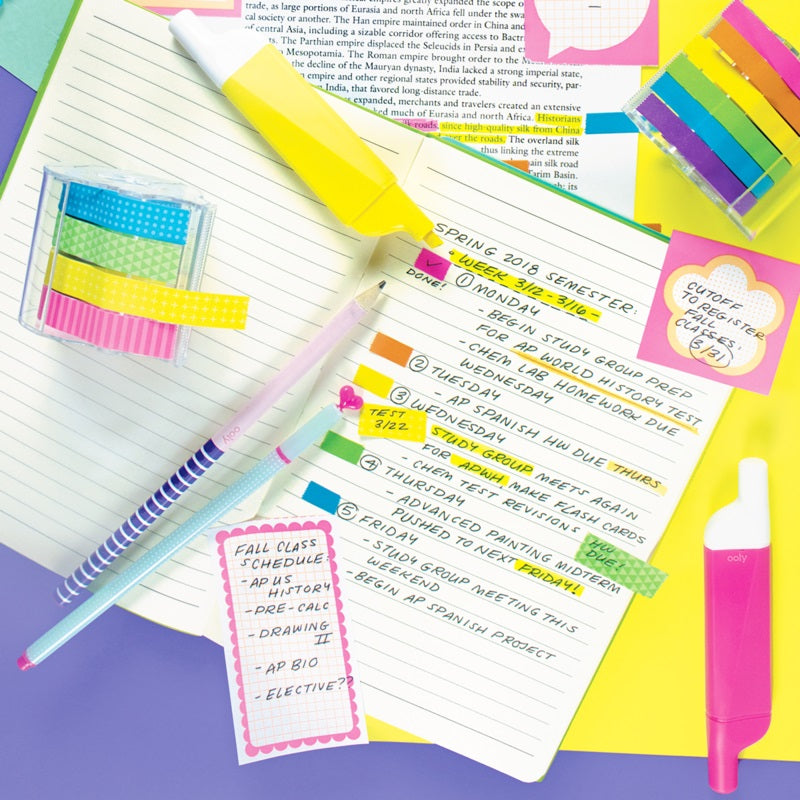 empires greatly expanded the scope o
trade, as large portions of Eurasia and north Africa fell under the swa
cal society or another. The Han empire maintained order in China and
of central Asia, including a sizable corridor offering access to Bactr
The Parthian empire displaced the Seleucids in Persia and ex
Mesopotamia. The Roman empire brought order to the
the decline of the Mauryan dynasty, India lacked a strong imperial state,
empire and other regional states provided stability and security, par-
India, that favored long-distance trade.
expanded, merchants and travelers created an extensive
ked much of Eurasia and north Africa. Historians
silk roads, since high-quality silk from China
over the roads. The overland silk
thus linking the extreme
main silk road
Tarim Basin.
its
SPRING 2018 SEMESTER:
WEEK 3/12 - 3/16 -
DONE!
1 MONDAY
- BEGIN STUDY GROUP PREP
FOR AP WORLD HISTORY TEST
WEDNESDAY
- CHEM LAB HOMEWORK DUE
2 TUESDAY
- AP SPANISH HW DUE THURS.
3 WEDNESDAY
STUDY GROUP MEETS AGAIN
FOR APWH, MAKE FLASH CARDS
- CHEM TEST REVISIONS
4 THURSDAY
- ADVANCED PAINTING MIDTERM
PUSHED TO NEXT FRIDAY!
5 FRIDAY
- STUDY GROUP MEETING THIS
WEEKEND
- BEGIN AP SPANISH PROJECT
TEST
3/22
HW
DUE!
CUTOFF
TO REGISTER
FALL
CLASSES,
3/31
FALL CLASS
SCHEDULE:
- AP US
HISTORY
- PRE-CALC
- DRAWING
II
- AP BIO
- ELECTIVE??
ooly
ooly